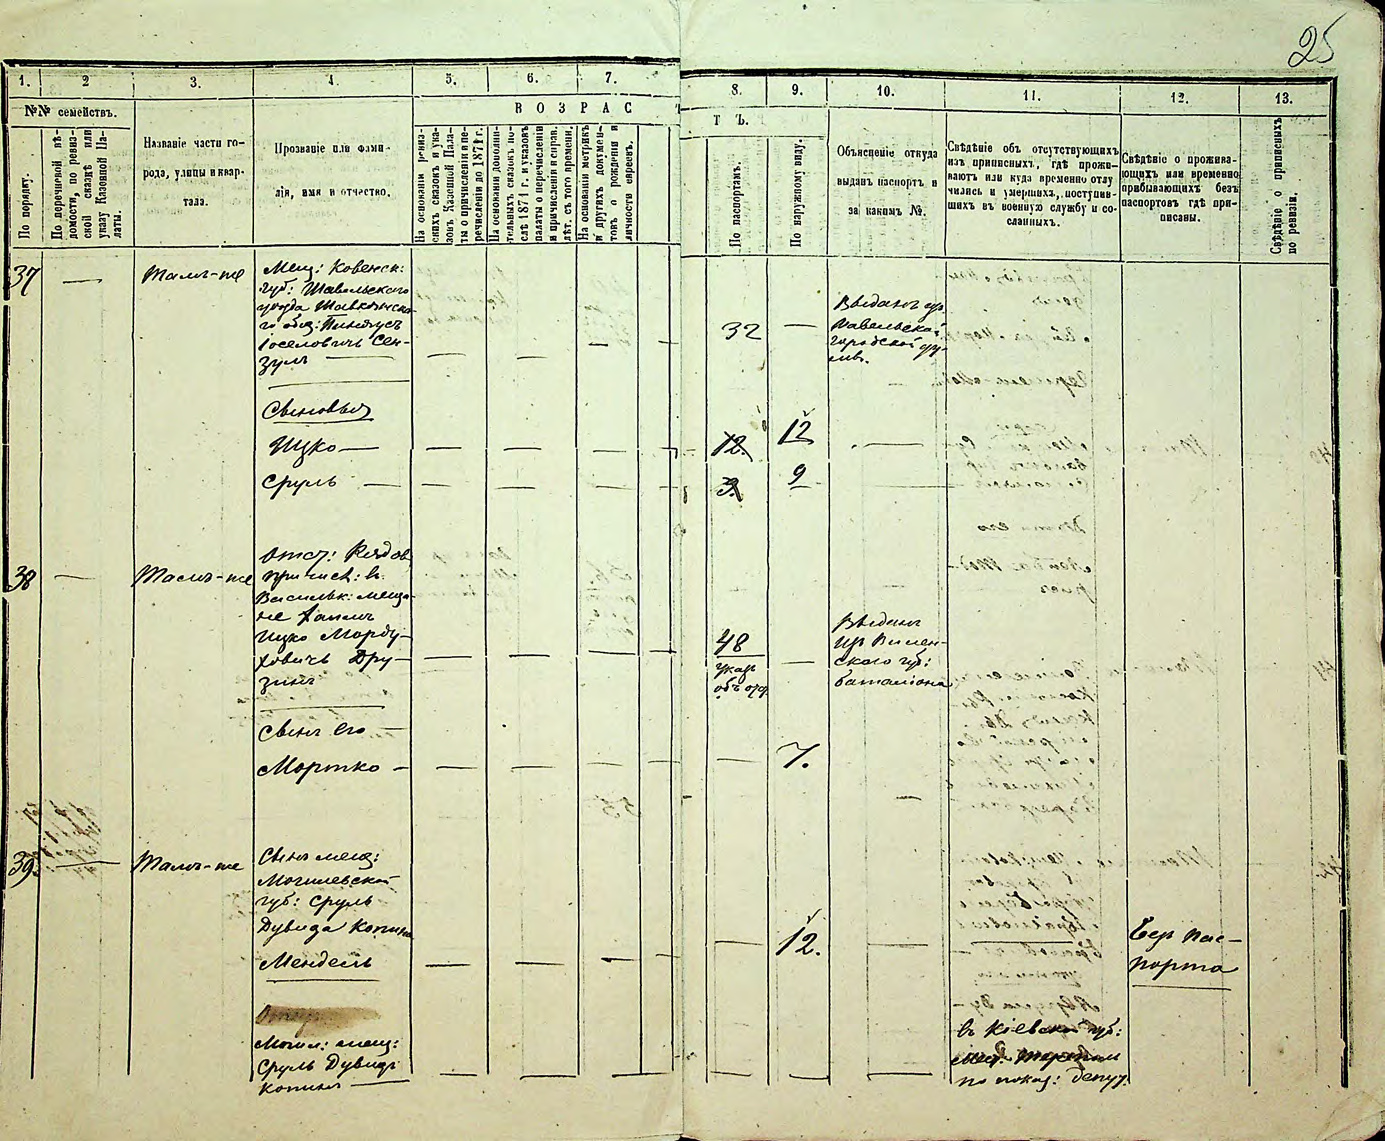 25
1. 2 3. 4. 5. 6. 7. 8. 9. 10. 11. 12. 13.
№№ семействъ.
По порядку.
По перечневой вѣ-
домости, по ревиз-
ской сказкѣ или
указу Казенной Па-
латы.
Названіе части го-
рода, улицы и квар-
тала.
Прозваніе или фами-
лія, имя и отчество.
ВОЗРАСТЪ.
На основаніи ревиз-
скихъ сказокъ и ука-
зовъ Казенной Пала-
ты о причисленіи и пе-
речисленіи до 1874 г.
На основаніи дополни-
тельныхъ сказокъ по-
слѣ 1874 г. и указовъ
палаты о перечисленіи
и причисленіи и справ.
лѣт. съ того времени.
На основаніи метрикъ
и другихъ докумен-
товъ о рожденіи и
личности евреевъ.
По паспортамъ.
По наружному виду.
Объясненіе откуда
выданъ паспортъ и
за какимъ №.
Свѣдѣніе объ отсутствующихъ
изъ приписныхъ, гдѣ прожи-
ваютъ или куда временно отлу
чились и умершихъ, поступив-
шихъ въ военную службу и со-
сланныхъ.
Свѣдѣніе о прожива-
ющихъ или временно
прибывающихъ безъ
паспортовъ гдѣ при-
писаны.
Свѣдѣніе о приписныхъ
по ревизіи.
37 — Тамъ-же
Мещ: Ковенск:
губ: Шавельскаго
уѣзда Шавкянска-
го общ: Пинхусъ
Іоселовичъ Сен-
зулъ — — — — — 32 —
Выданъ из
Шавельской
городской ду-
мы.
Сыновья
Ицко — — — — — 12. 12 —
Сруль — — — — — 3. 9 —
38 — Тамъ-же
Отст: Рядов
причисл: въ
Васильк: меща-
не Хаимъ
Ицко Морду-
ховичъ Дру-
зинъ — — — — 48 —
указ
объ от.
Выданъ
из Вилен-
скаго губ:
баталіона
Сынъ его —
Мортко — — — — — — 7. —
39. — Тамъ-же
Сынъ мещ:
Могилевской
губ: Сруль
Дувида Копина
Мендель — — — — — 12. — —
Без пас-
порта
Могил: мещ:
Сруль Дувидъ
Копинъ — — — — — — — —
въ Кіевской губ:
по показ: депут.